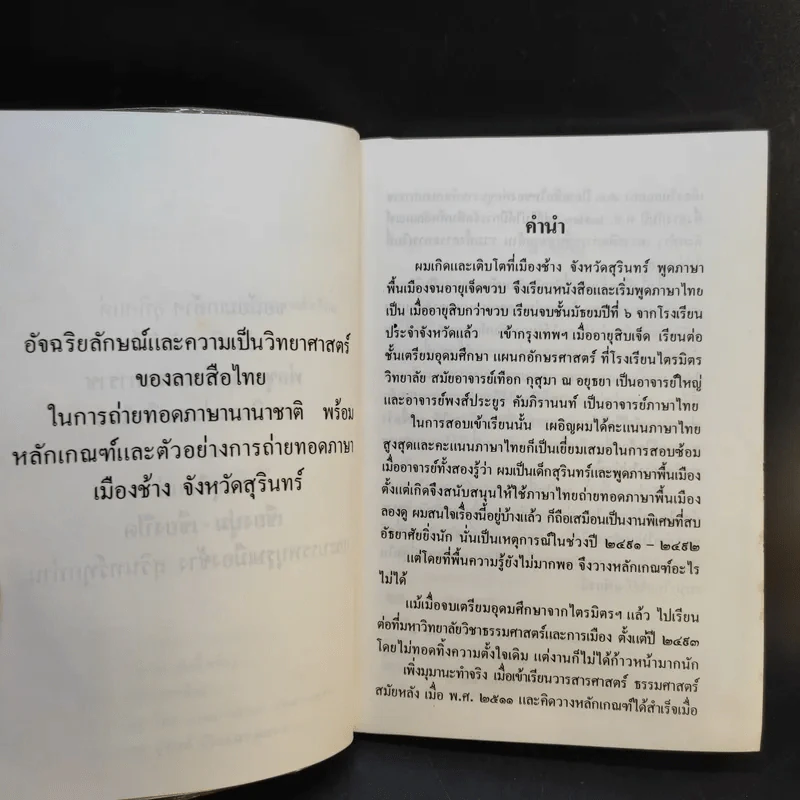 อัจฉริยลักษณ์และความเป็นวิทยาศาสตร์
ของลายสือไทย
ในการถ่ายทอดภาษานานาชาติ พร้อม
หลักเกณฑ์และตัวอย่างการถ่ายทอดภาษา
เมืองช้าง จังหวัดสุรินทร์
คำนำ
ผมเกิดและเติบโตที่เมืองช้าง จังหวัดสุรินทร์ พูดภาษา
พื้นเมืองจนอายุเจ็ดขวบ จึงเรียนหนังสือและเริ่มพูดภาษาไทย
เป็น เมื่ออายุสิบกว่าขวบ เรียนจบชั้นมัธยมปีที่ ๖ จากโรงเรียน
ประจำจังหวัดแล้ว เข้ากรุงเทพฯ เมื่ออายุสิบเจ็ด เรียนต่อ
ชั้นเตรียมอุดมศึกษา แผนกอักษรศาสตร์ ที่โรงเรียนไตรมิตร
วิทยาลัย สมัยอาจารย์เทือก กุสุมา ณ อยุธยา เป็นอาจารย์ใหญ่
และอาจารย์พงส์ประยูร คัมภิรานนท์ เป็นอาจารย์ภาษาไทย
ในการสอบเข้าเรียนนั้น เผอิญผมได้คะแนนภาษาไทย
สูงสุดและคะแนนภาษาไทยก็เป็นเยี่ยมเสมอในการสอบซ้อม
เมื่ออาจารย์ทั้งสองรู้ว่า ผมเป็นเด็กสุรินทร์และพูดภาษาพื้นเมือง
ตั้งแต่เกิดจึงสนับสนุนให้ใช้ภาษาไทยถ่ายทอดภาษาพื้นเมือง
ลองดู ผมสนใจเรื่องนี้อยู่บ้างแล้ว ก็ถือเสมือนเป็นงานพิเศษที่สบ
อัธยาศัยยิ่งนัก นั่นเป็นเหตุการณ์ในช่วงปี ๒๔๙๑ – ๒๔๙๒
แต่โดยที่พื้นความรู้ยังไม่มากพอ จึงวางหลักเกณฑ์อะไร
ไม่ได้
แม้เมื่อจบเตรียมอุดมศึกษาจากไตรมิตรฯ แล้ว ไปเรียน
ต่อที่มหาวิทยาลัยวิชาธรรมศาสตร์และการเมือง ตั้งแต่ปี ๒๔๙๓
โดยไม่ทอดทิ้งความตั้งใจเดิม แต่งานก็ไม่ได้ก้าวหน้ามากนัก
เพิ่งมุมานะทำจริง เมื่อเข้าเรียนวารสารศาสตร์ ธรรมศาสตร์
สมัยหลัง เมื่อ พ.ศ. ๒๕๑๑ และคิดวางหลักเกณฑ์ได้สำเร็จเมื่อ